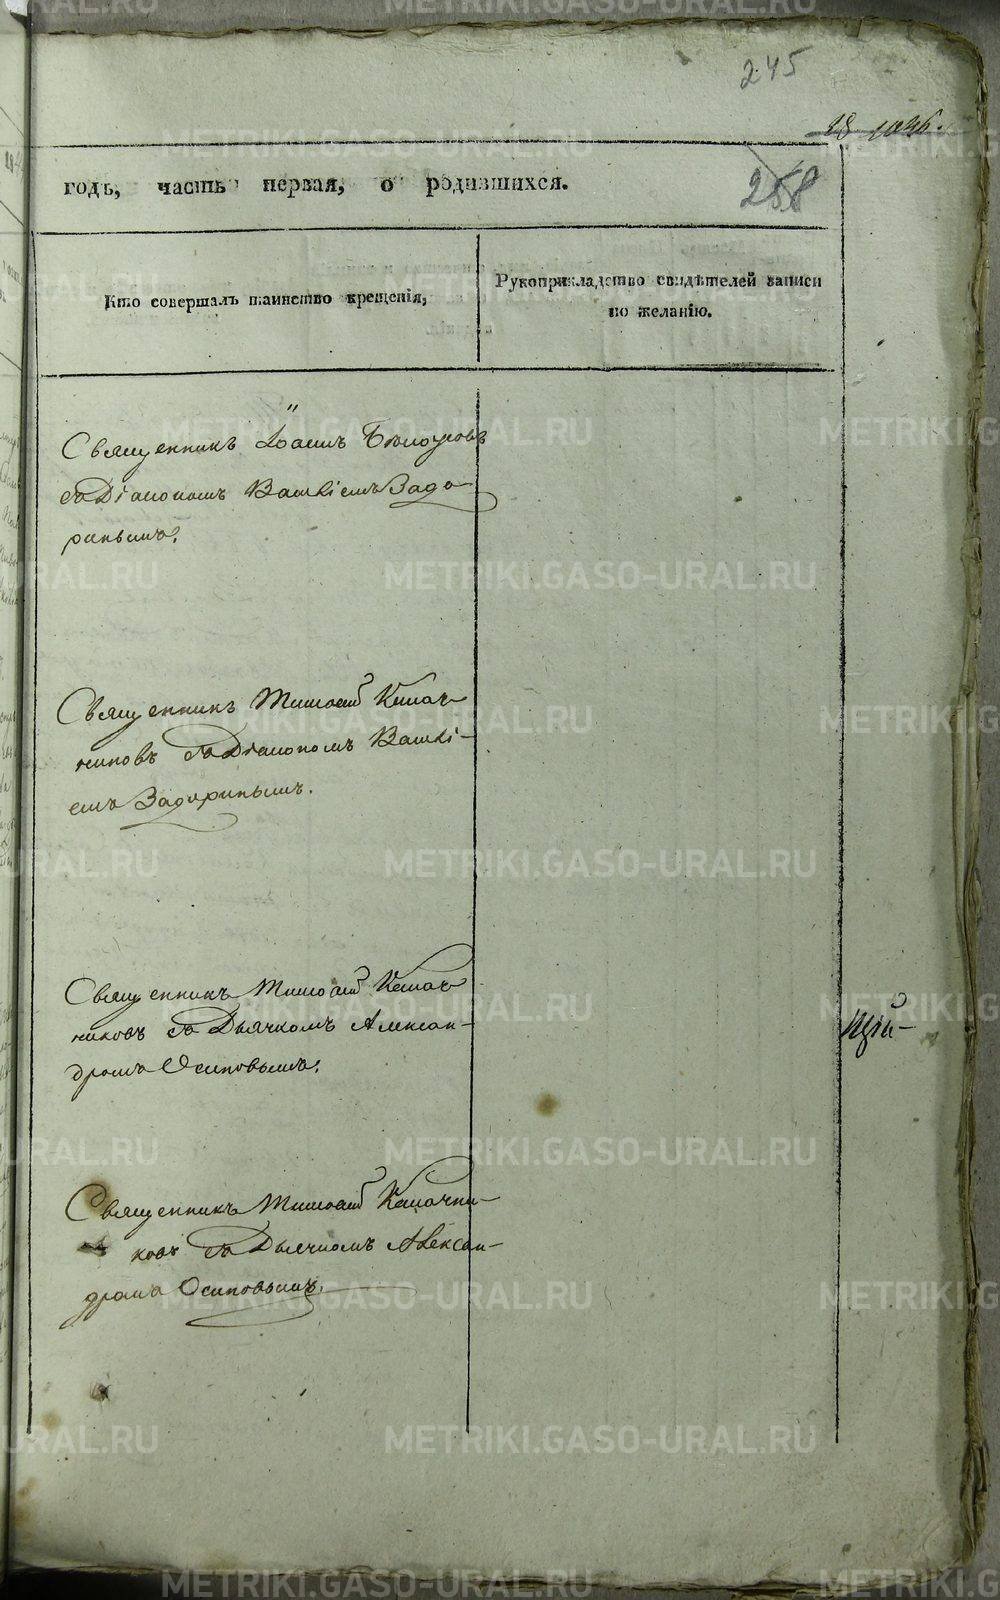 245
годъ, часть первая, о родившихся.
268
Кто совершалъ таинство крещенія,
Рукоприкладство свидѣтелей записи
по желанію.
Священникъ Іоаннъ
съ Діакономъ Задо-
ринымъ.
Священникъ Тимоѳей Канач-
никовъ съ Діакономъ
Задоринымъ.
Священникъ Тимоѳей Канач-
никовъ съ Дьячкомъ Алексан-
дромъ Осиповымъ.
Священникъ Тимоѳей Каначни-
ковъ съ Дьячкомъ Алексан-
дромъ Осиповымъ.
METRIKI.GASO-URAL.RU